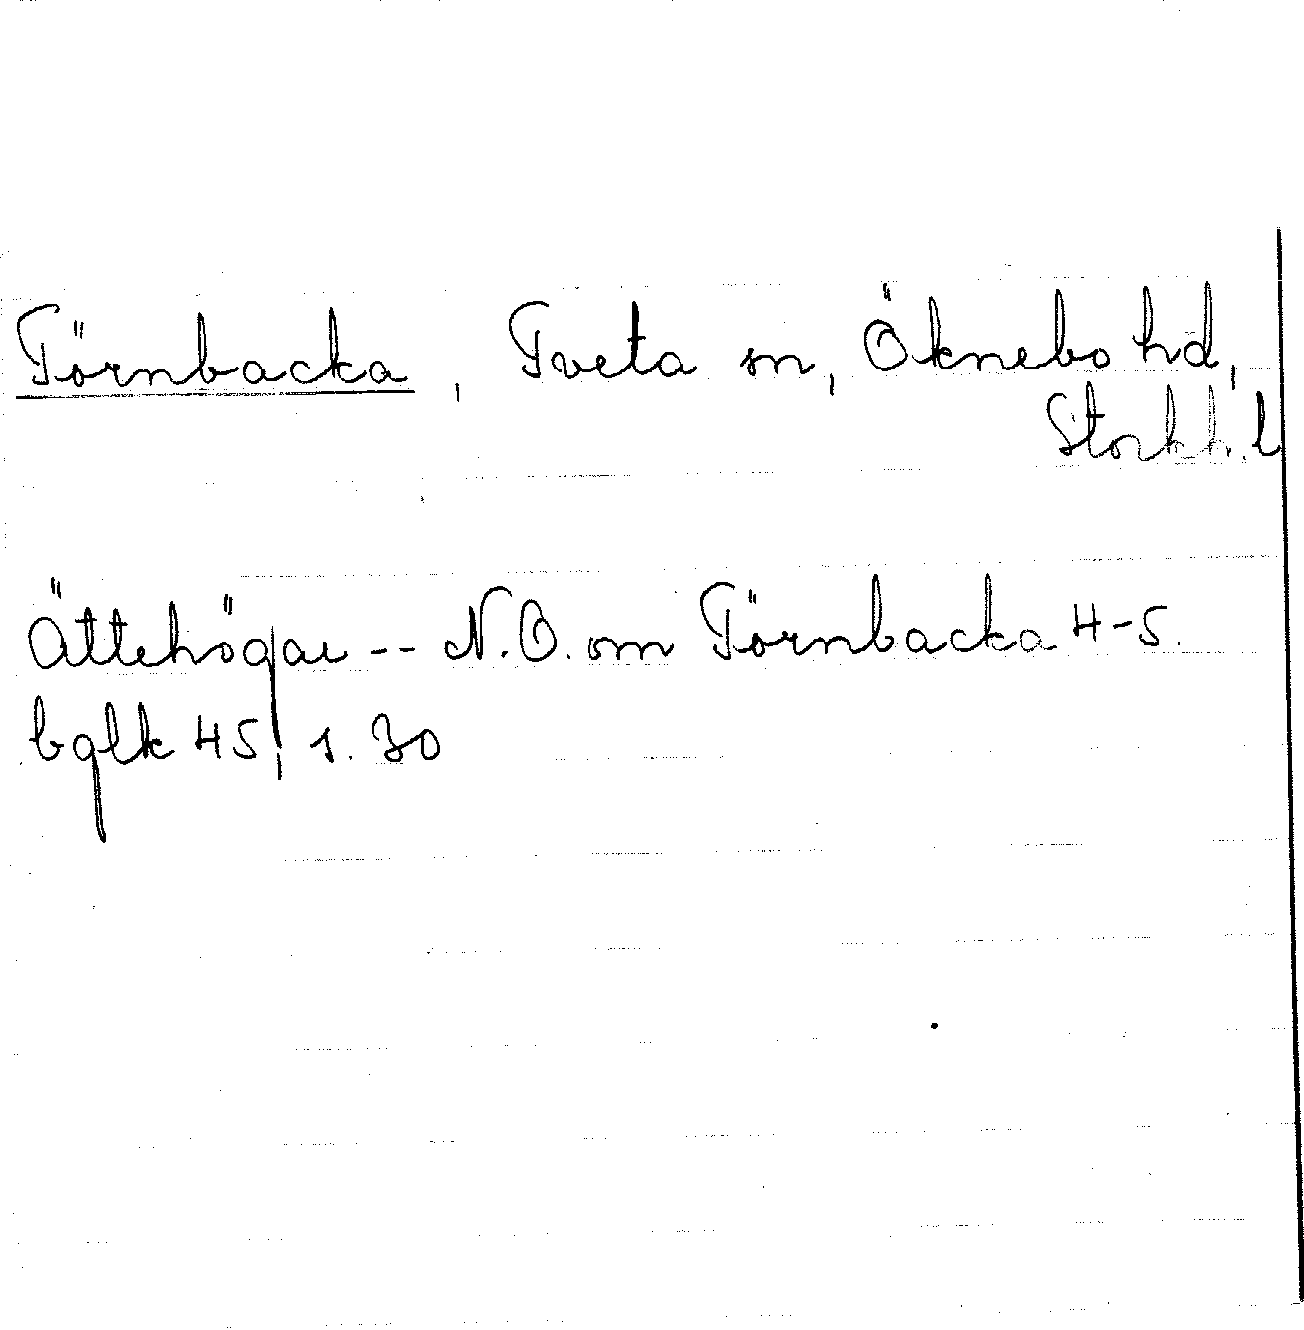 Törnbacka, Tveta sn, Öknebo hd,
Stockh. l
Ättehögar -- N.O. om Törnbacka 4-5.
bglk 45, s. 30